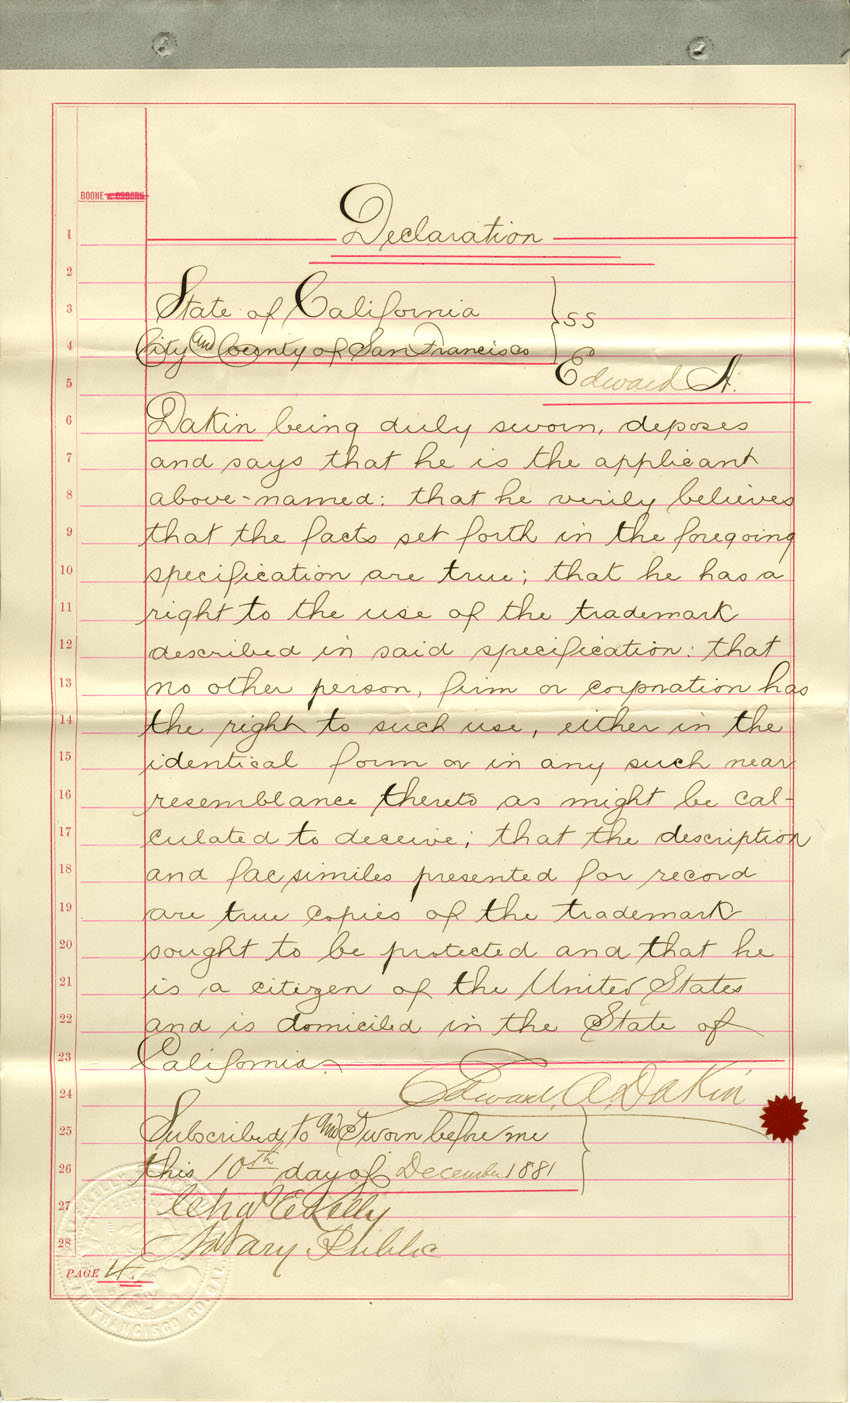 BOONE & OSBORN
1 Declaration
2
3 State of California } ss
4 City and County of San Francisco
5 Edward A.
6 Dakin being duly sworn, deposes
7 and says that he is the applicant
8 above-named: that he verily believes
9 that the facts set forth in the foregoing
10 specification are true; that he has a
11 right to the use of the trademark
12 described in said specification: that
13 no other person, firm or corporation has
14 the right to such use, either in the
15 identical form or in any such near
16 resemblance thereto as might be cal-
17 culated to deceive; that the description
18 and facsimiles presented for record
19 are true copies of the trademark
20 sought to be protected and that he
21 is a citizen of the United States
22 and is domiciled in the State of
23 California.
24 Edward. A. Dakin
25 Subscribed, to and Sworn before me
26 this 10th day of December 1881
27 Chas E Kelly
28 Notary Public
PAGE 4.
SAN FRANCISCO